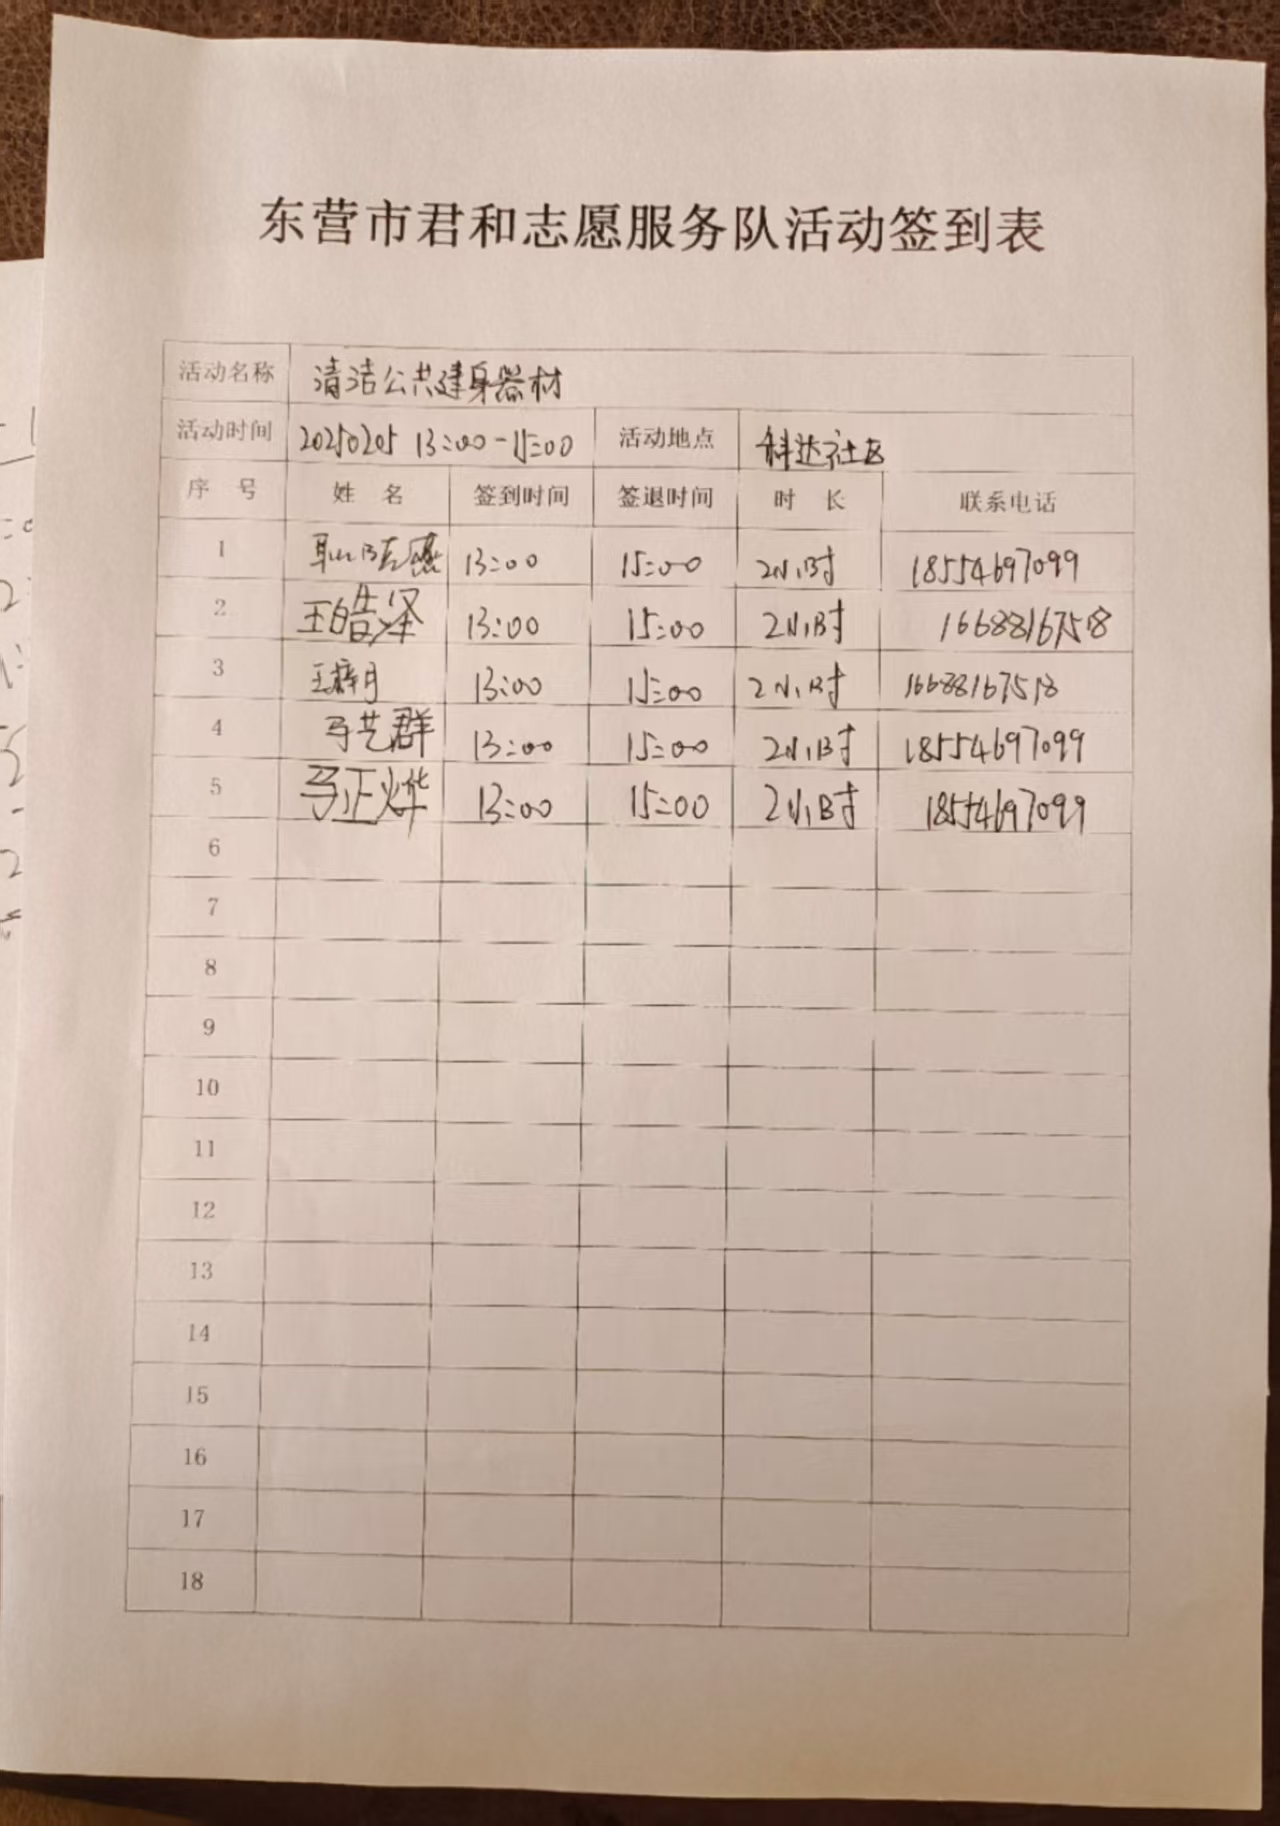 东营市君和志愿服务队活动签到表
活动名称 清洁公共健身器材
活动时间 20250205 13:00-15:00 活动地点 科达社区
序号 姓名 签到时间 签退时间 时长 联系电话
1 13:00 15:00 2小时 18554697099
2 王皓泽 13:00 15:00 2小时 16688167518
3 王梓月 13:00 15:00 2小时 16688167518
4 马艺群 13:00 15:00 2小时 18554697099
5 马正烨 13:00 15:00 2小时 18554697099
6
7
8
9
10
11
12
13
14
15
16
17
18